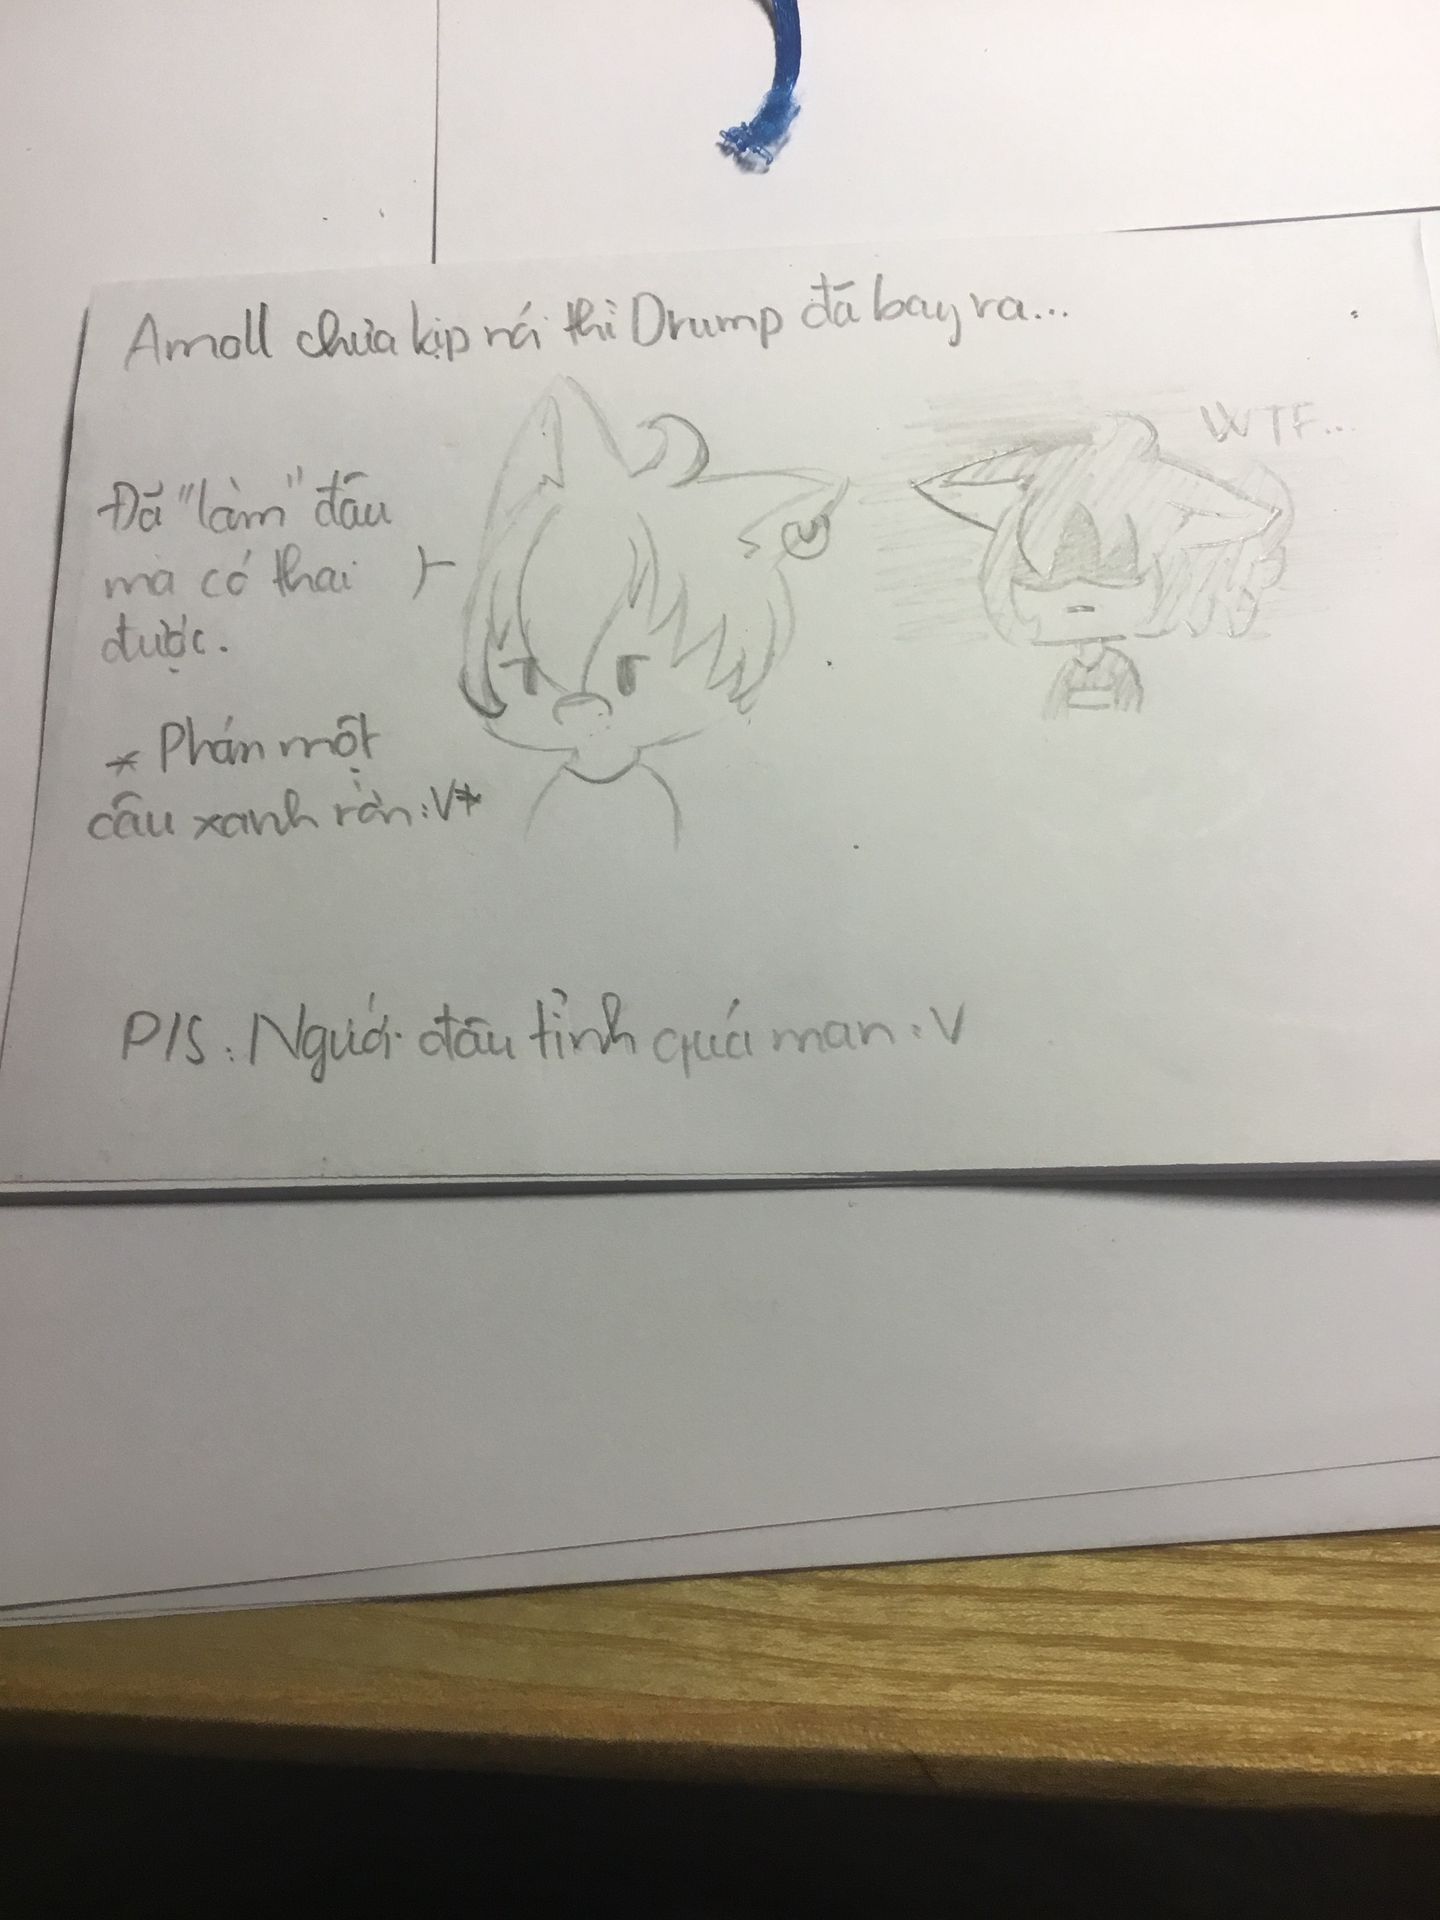 Amoll chưa kịp nói thì Drump đã bay ra...
WTF...
Đã "làm" đâu
mà có thai
được.
* Phán một
câu xanh rờn :V*
P/S: Người đâu tỉnh quá man :V